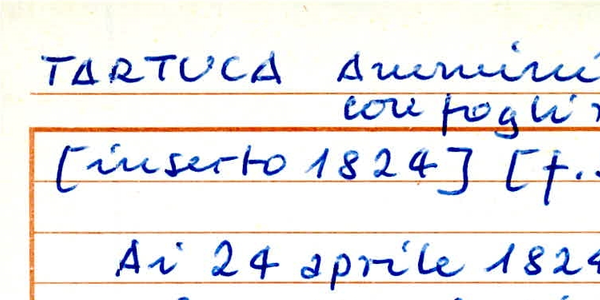 TARTUCA
con fogli
[inserto 1824] [f.
Ai 24 aprile 1824